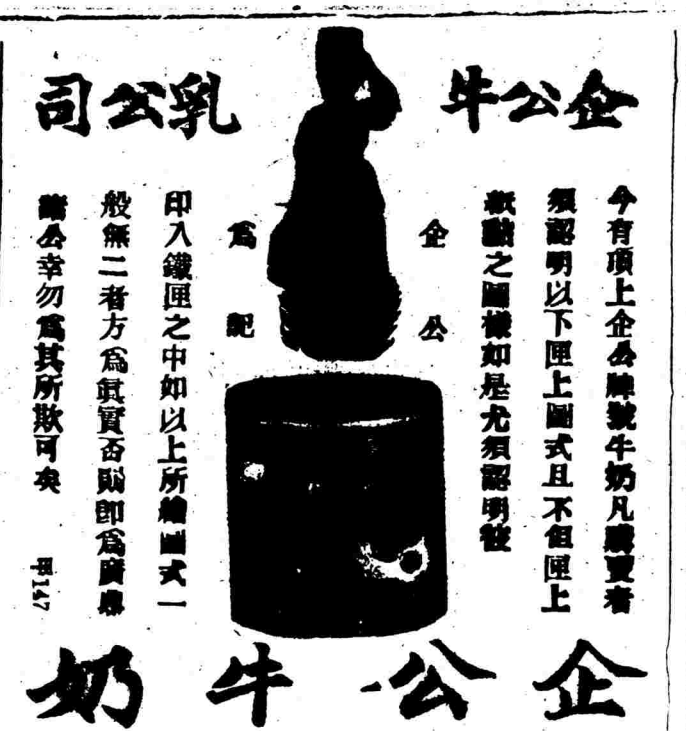 企公牛乳公司
今有頂上企公牌號牛奶凡購買者
須認明以下匣上圖式且不但匣上
紙黏之圖樣如是尤須認明
企公
為記
印入鐵匣之中如以上所繪圖式一
般無二者方為真實否則即為
諸公幸勿為其所欺可矣
147
企公牛奶